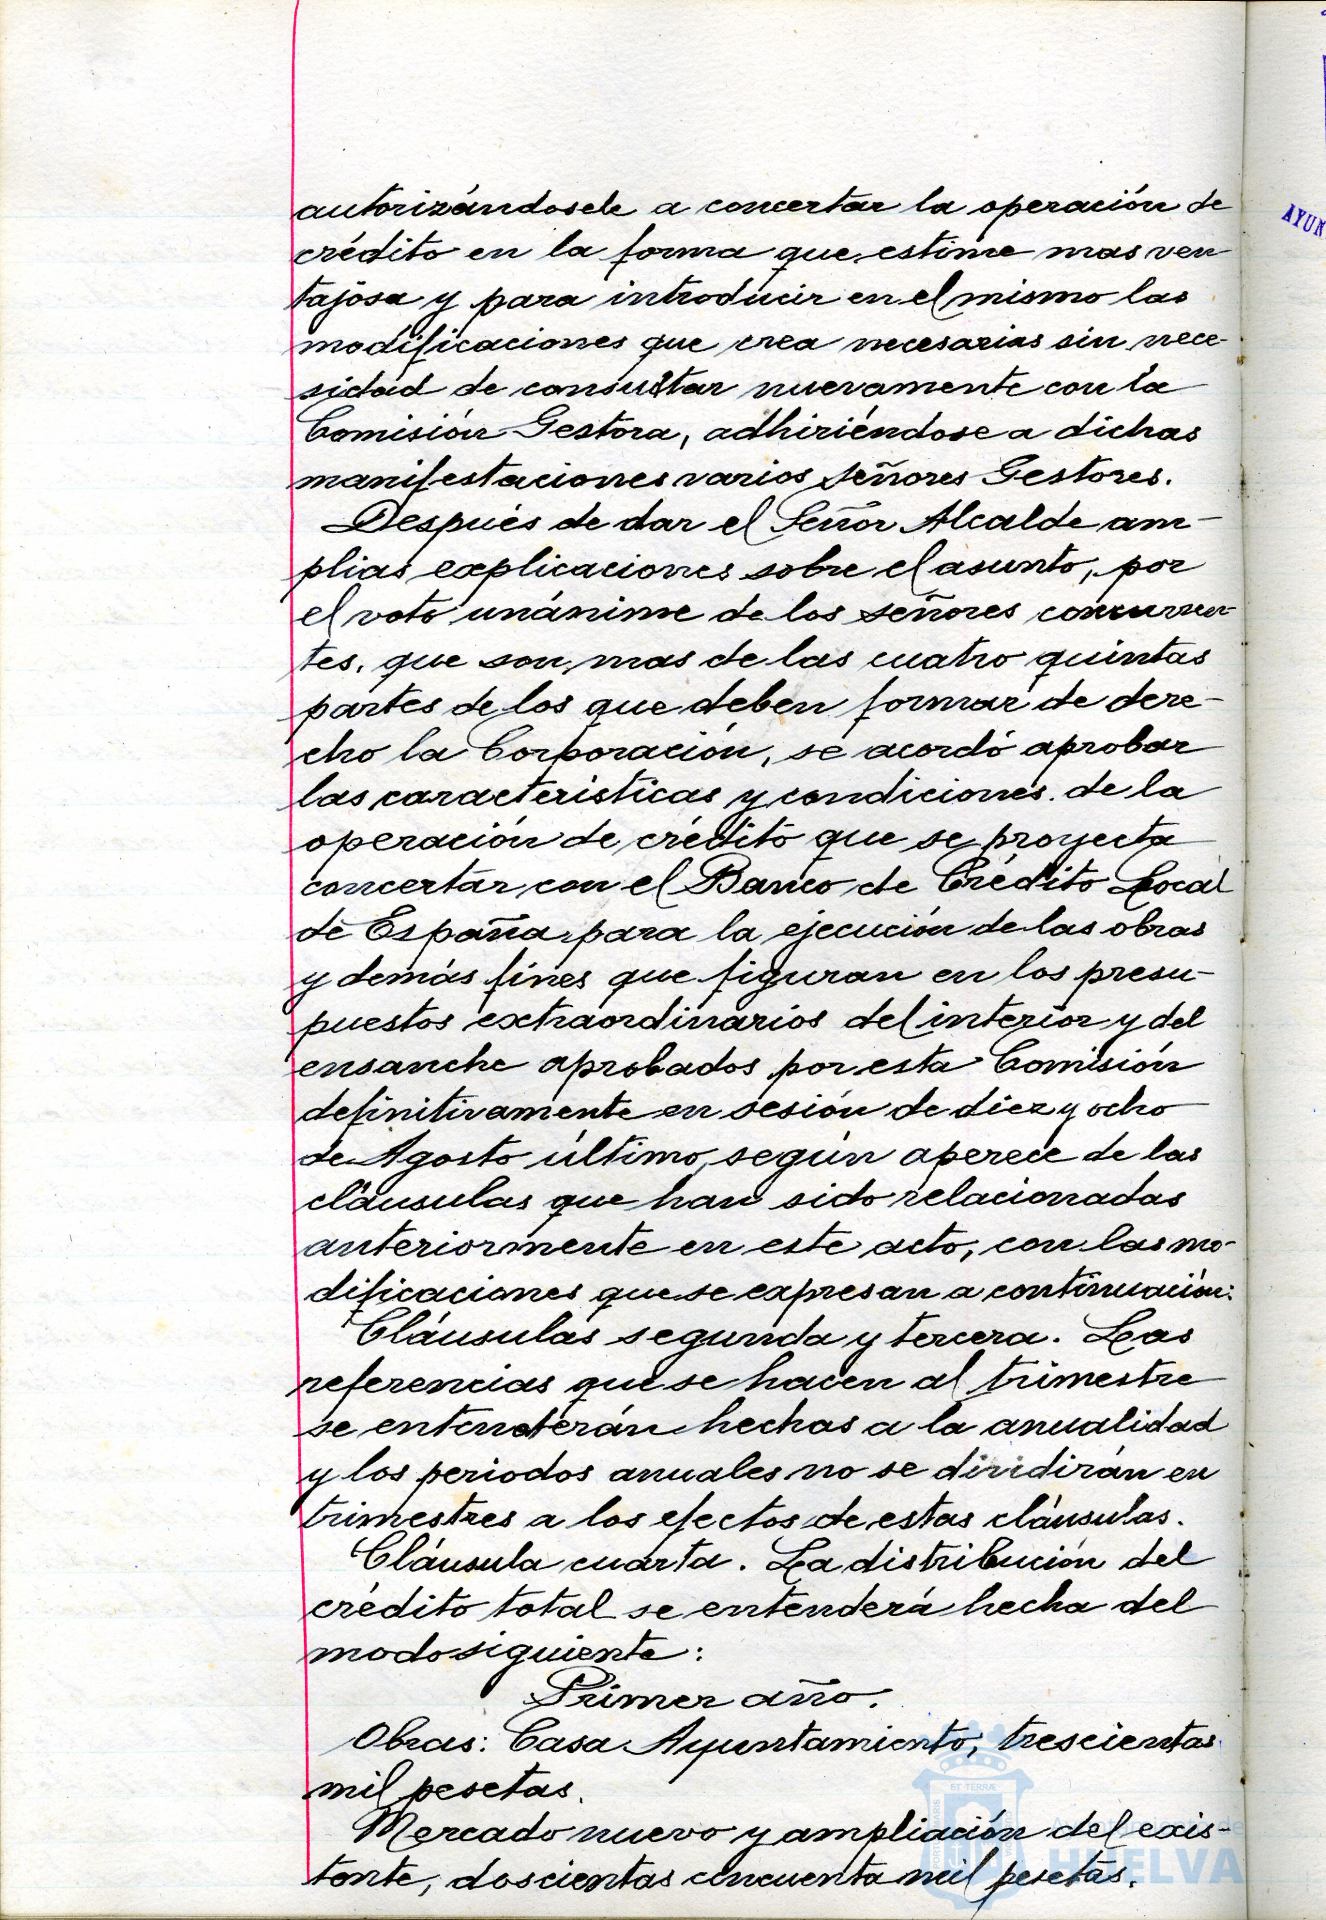 autorizándosele a concertar la operación de
crédito en la forma que estime mas ven
tajosa y para introducir en el mismo las
modificaciones que crea necesarias sin nece-
sidad de consultar nuevamente con la
Comisión Gestora, adhiriéndose a dichas
manifestaciones varios señores Gestores.
Después de dar el Señor Alcalde am-
plias explicaciones sobre el asunto, por
el voto unánime de los señores concurren-
tes, que son mas de las cuatro quintas
partes de los que deben formar de dere-
cho la Corporación, se acordó aprobar
las caracteristicas y condiciones de la
operación de crédito que se proyecta
concertar con el Banco de Crédito Local
de España para la ejecución de las obras
y demás fines que figuran en los presu-
puestos extraordinarios del interior y del
ensanche aprobados por esta Comisión
definitivamente en sesión de diez y ocho
de Agosto último, según aperece de las
cláusulas que han sido relacionadas
anteriormente en este acto, con las mo-
dificaciones que se expresan a continuación:
Cláusulas segunda y tercera. Las
referencias que se hacen al trimestre
se entenderán hechas a la anualidad
y los periodos anuales no se dividirán en
trimestres a los efectos de estas cláusulas.
Cláusula cuarta. La distribución del
crédito total se entenderá hecha del
modo siguiente:
Primer año.
Obras: Casa Ayuntamiento, trescientas
mil pesetas.
Mercado nuevo y ampliación del exis-
tente, doscientas cincuenta mil pesetas.
AYUN
ET TERRÆ
Ayuntamiento de
HUELVA